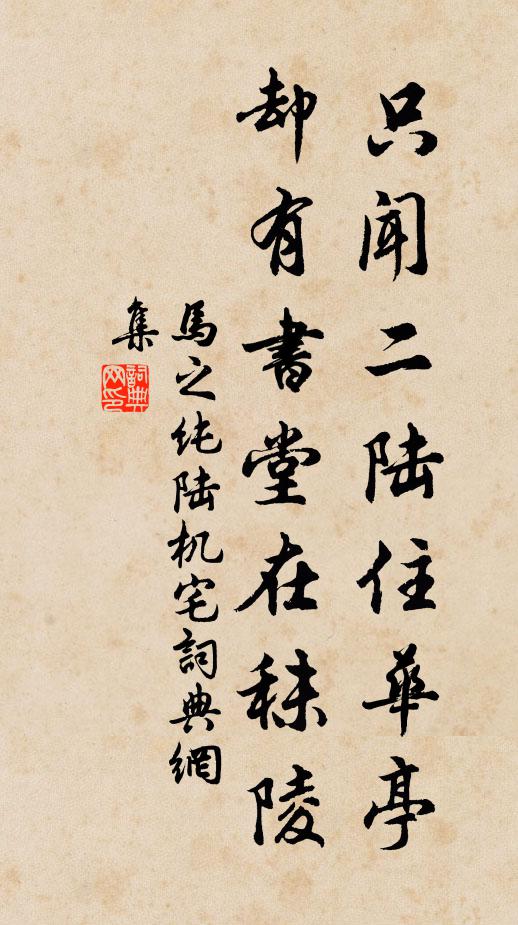 只聞二陆住華亭
却有書堂在秣陵
馬之纯陆机宅詞典網
集
詞典网印